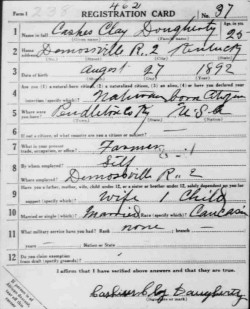 Form 1 462 No. 37
REGISTRATION CARD
1 Name in full Clay Dougherty Age, in yrs. 25
2 Home address Demossville R. 2 Kentucky
3 Date of birth August 27 1892
4 Are you a natural-born citizen
Natural born citizen
5 Where were you born? Pendleton Ky U.S.A.
6 If not a citizen, of what country are you a citizen or subject?
7 What is your present trade, occupation, or office? Farmer
8 By whom employed? Self
Where employed? Demossville R. 2
9 Have you a father, mother, wife, child under 12, or a sister or brother under 12, solely dependent on you for
support (specify which)? Wife 1 Child
10 Married or single (which)? Married Race (specify which)? Caucasian
11 What military service have you had? Rank none ; branch —
years — Nation or State —
12 Do you claim exemption
from draft (specify grounds)?
I affirm that I have verified above answers and that they are true.
Clay Dougherty